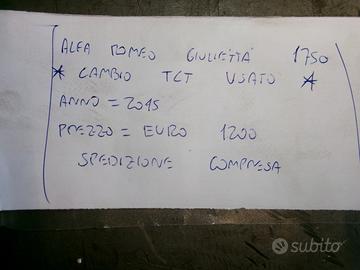 ALFA ROMEO GIULIETTA 1750
* CAMBIO TCT USATO *
ANNO = 2015
PREZZO = EURO 1200
SPEDIZIONE COMPRESA
subito